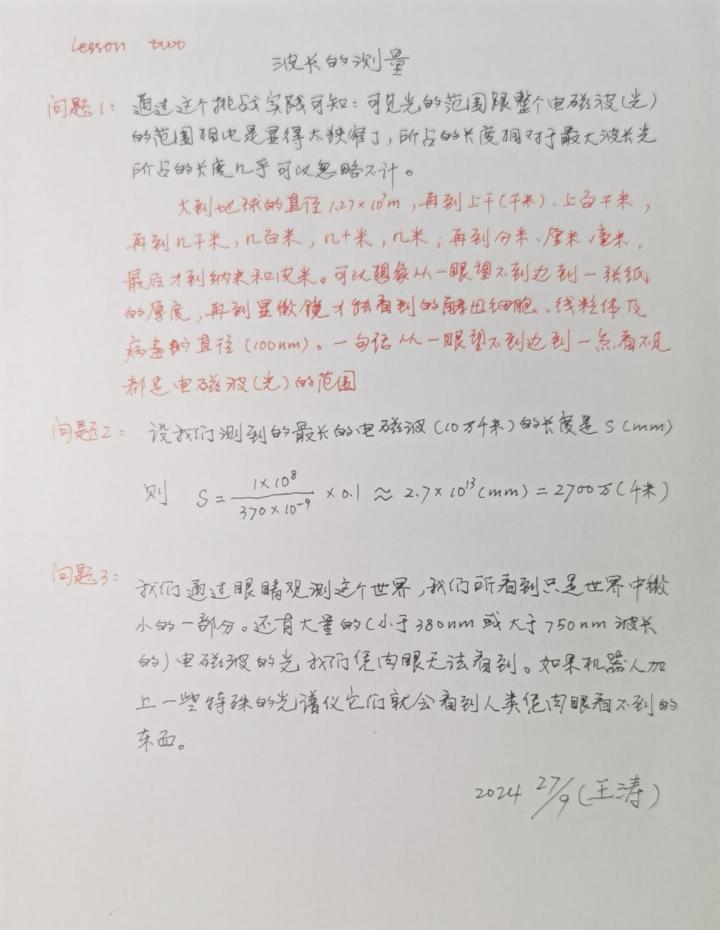 Lesson two
波长的测量
问题1: 通过这个挑战实践可知:可见光的范围跟整个电磁波(光)
的范围相比是显得太狭窄了,所占的长度相对于最大波长光
所占的长度几乎可以忽略不计。
大到地球的直径1.27×10⁷m,再到上千(千米)、上百千米,
再到几千米,几百米,几十米,几米;再到分米、厘米、毫米,
最后才到纳米和皮米。可以想象从一眼望不到边到一张纸
的厚度,再到显微镜才能看到的酵母细胞、线粒体及
病毒的直径(100nm)。一句话从一眼望不到边到一点看不见
都是电磁波(光)的范围
问题2: 设我们测到的最长的电磁波(10万千米)的长度是S(mm)
则 S = 1×10⁸ / 370×10⁻⁹ × 0.1 ≈ 2.7×10¹³(mm) = 2700万(千米)
问题3: 我们通过眼睛观测这个世界,我们所看到只是世界中微
小的一部分。还有大量的(小于380nm或大于750nm波长
的)电磁波的光我们凭肉眼无法看到。如果机器人加
上一些特殊的光谱仪它们就会看到人类凭肉眼看不到的
东西。
2024 27/9(王涛)